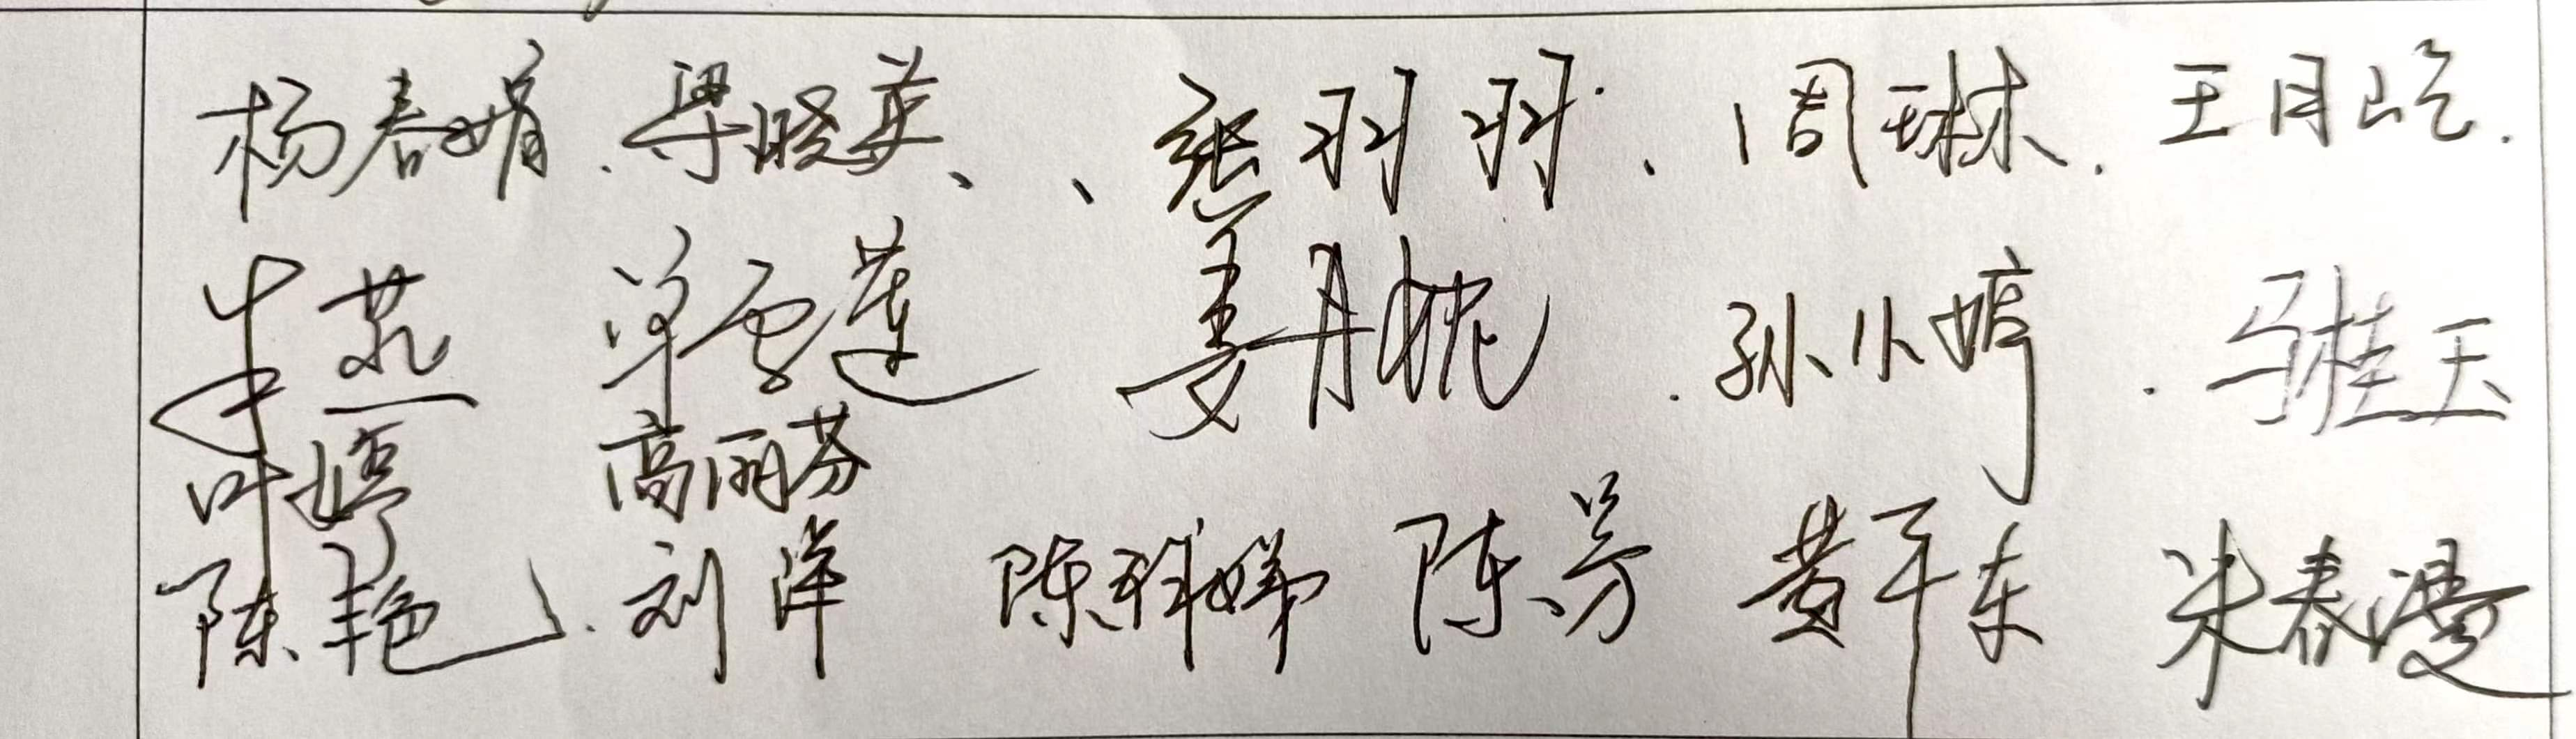 杨春娟、梁晓英、、张羽羽、周琳、王月屹.
牛燕 单雪莲 姜月 .孙小婷 .马桂玉
叶婷 高丽芬
陈艳、刘洋 陈 娣 陈芳 黄千东 朱春漫